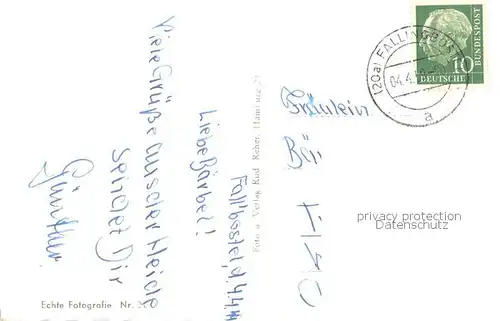 Fallbostel, d. 4.4.
Liebe Bärbel!
Viele Grüße aus der Heide
sendet Dir
Günther.
Echte Fotografie Nr.
Foto u. Verlag Rud. Reher, Hamburg
(20a) FALLINGBOSTEL
04.4.
a
10
DEUTSCHE
BUNDESPOST
Fräulein
privacy protection
Datenschutz